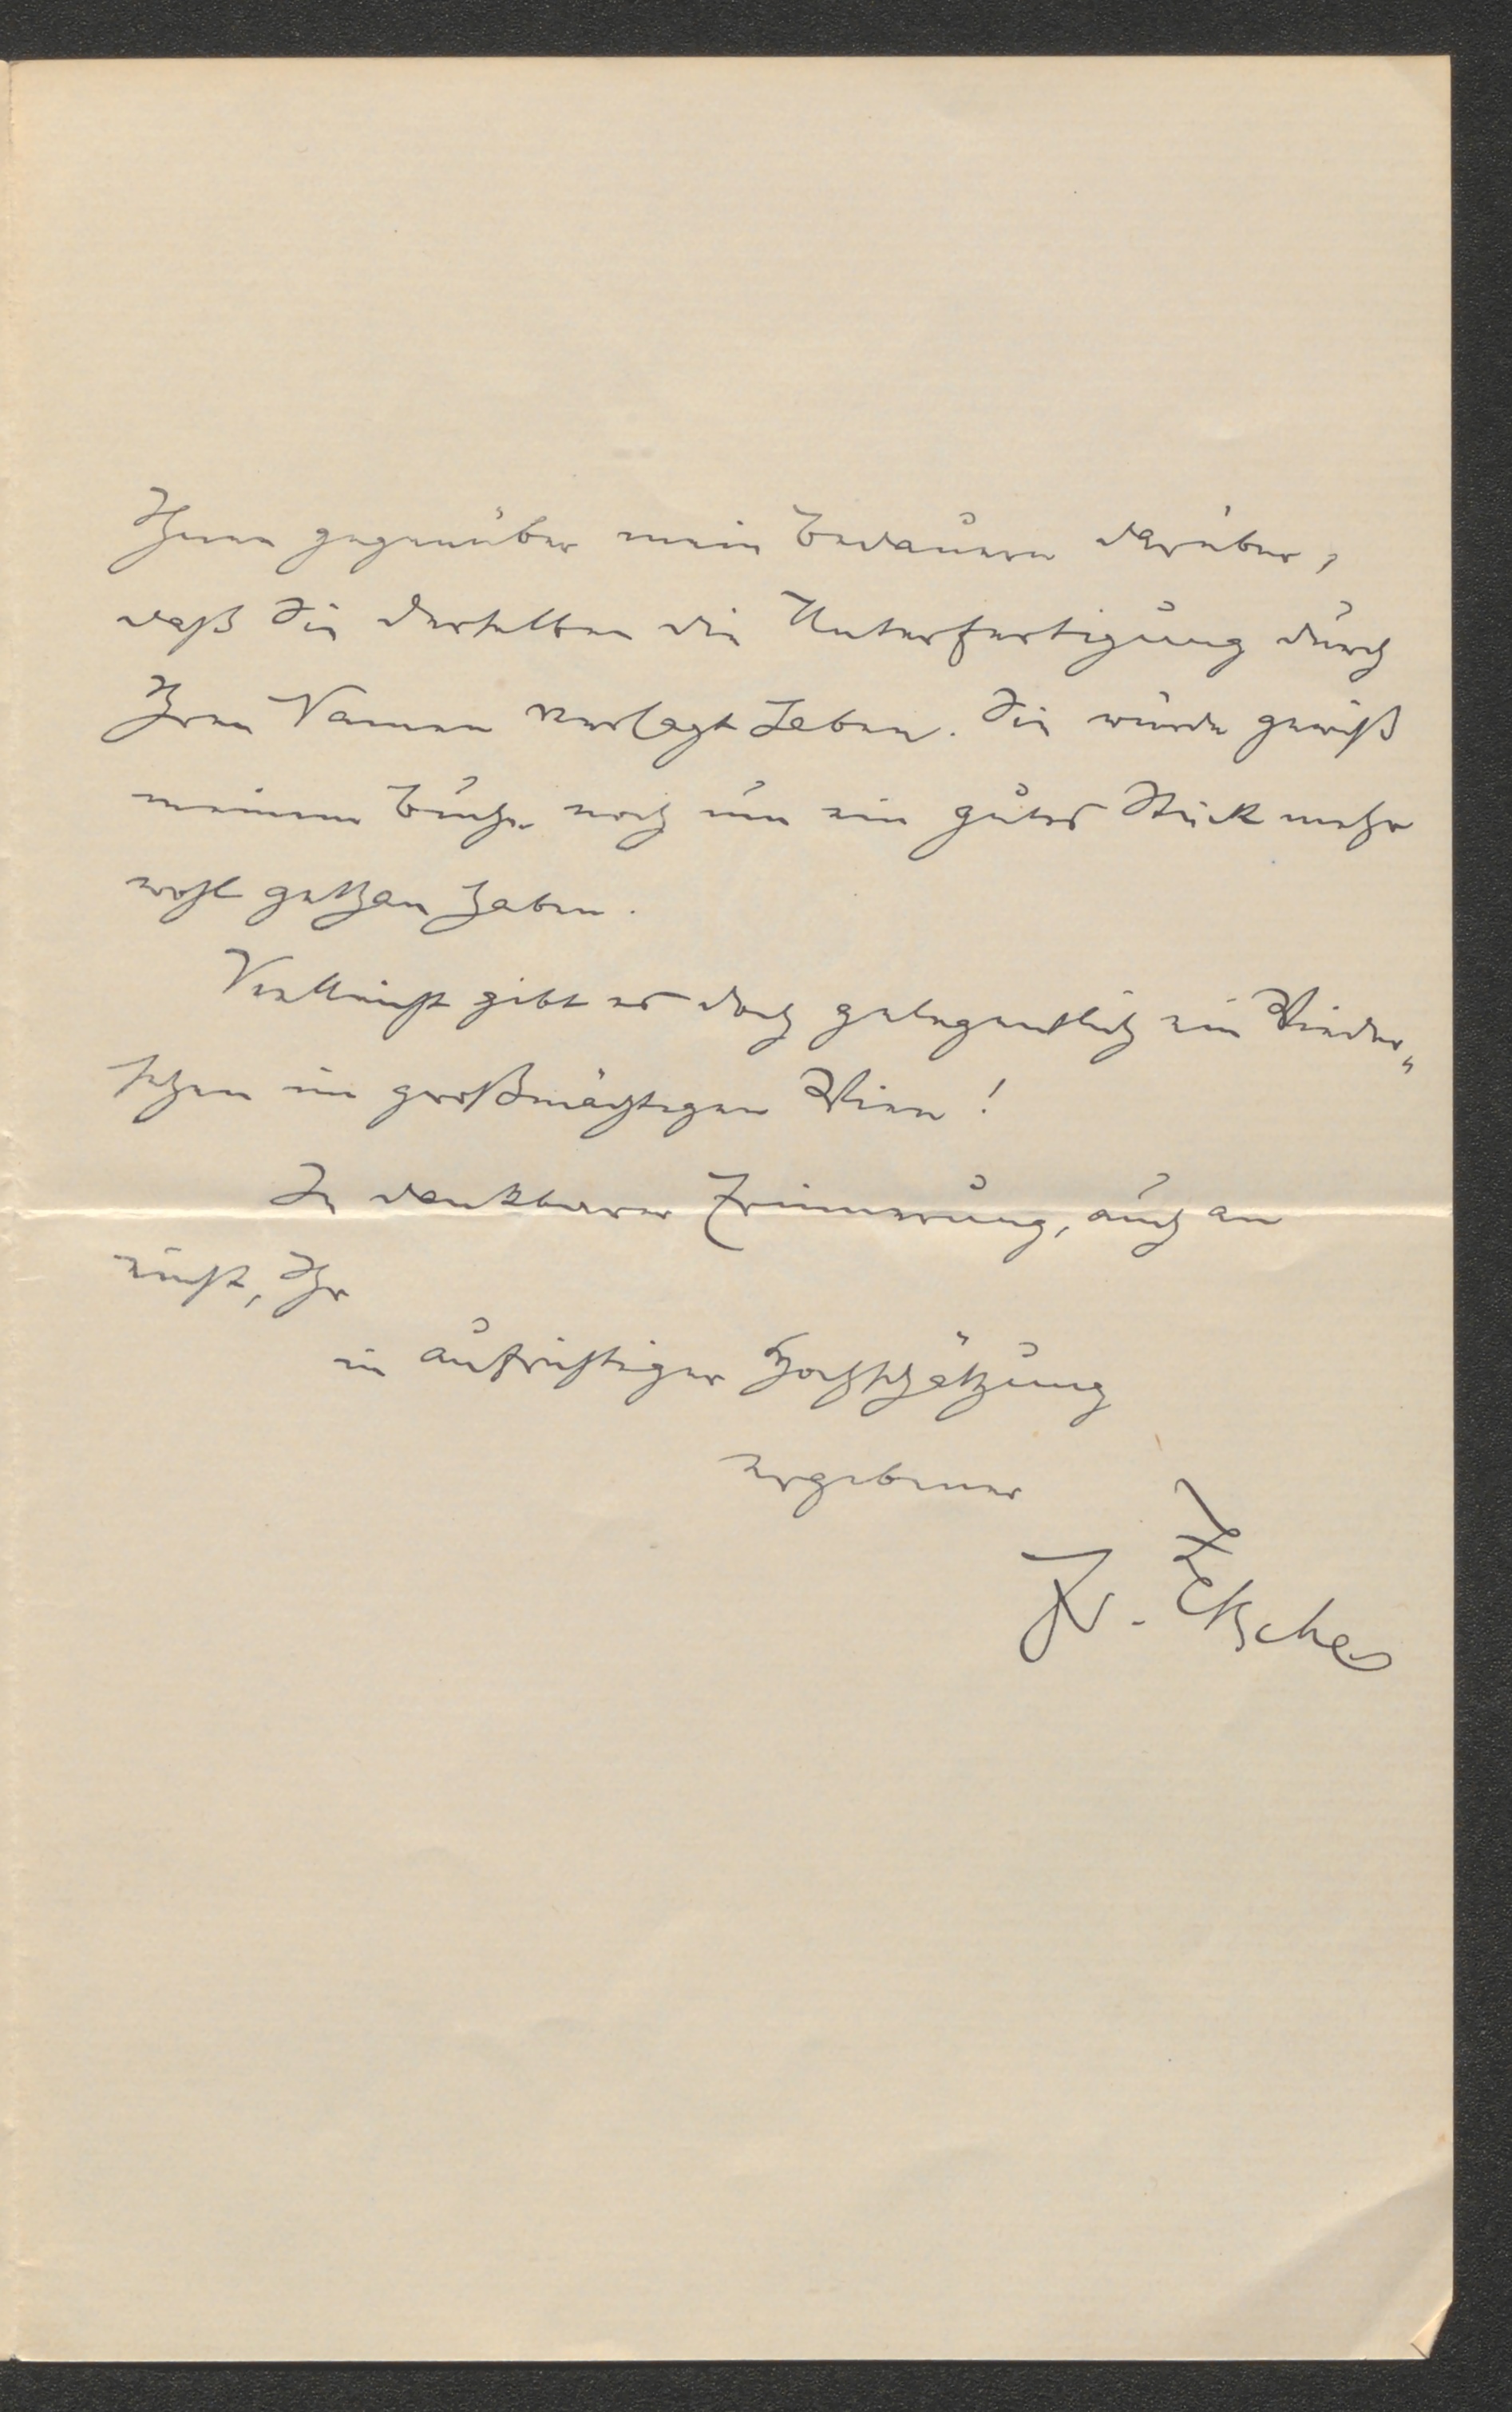 Ihnen gegenüber mein Bedauern darüber,
daß Sie derselben die Unterfertigung durch
Ihren Namen versagt haben. Sie würde gewiß
meinem Buche noch um ein gutes Stück mehr
wohl gethan haben.
Vielleicht gibt es doch gelegentlich ein Wieder„
sehen im großmächtigen Wien!
In dankbarer Erinnerung, auch an
einst, Ihr
in aufrichtiger Hochschätzung
ergebener